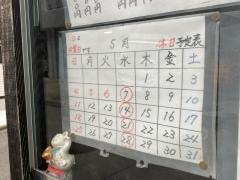 円 円 円
5月 休日予定表
日 月 火 水 木 金 土
1 2 3
4 5 6 7 8 9 10
11 12 13 14 15 16 17
18 19 20 21 22 23 24
25 26 27 28 29 30 31